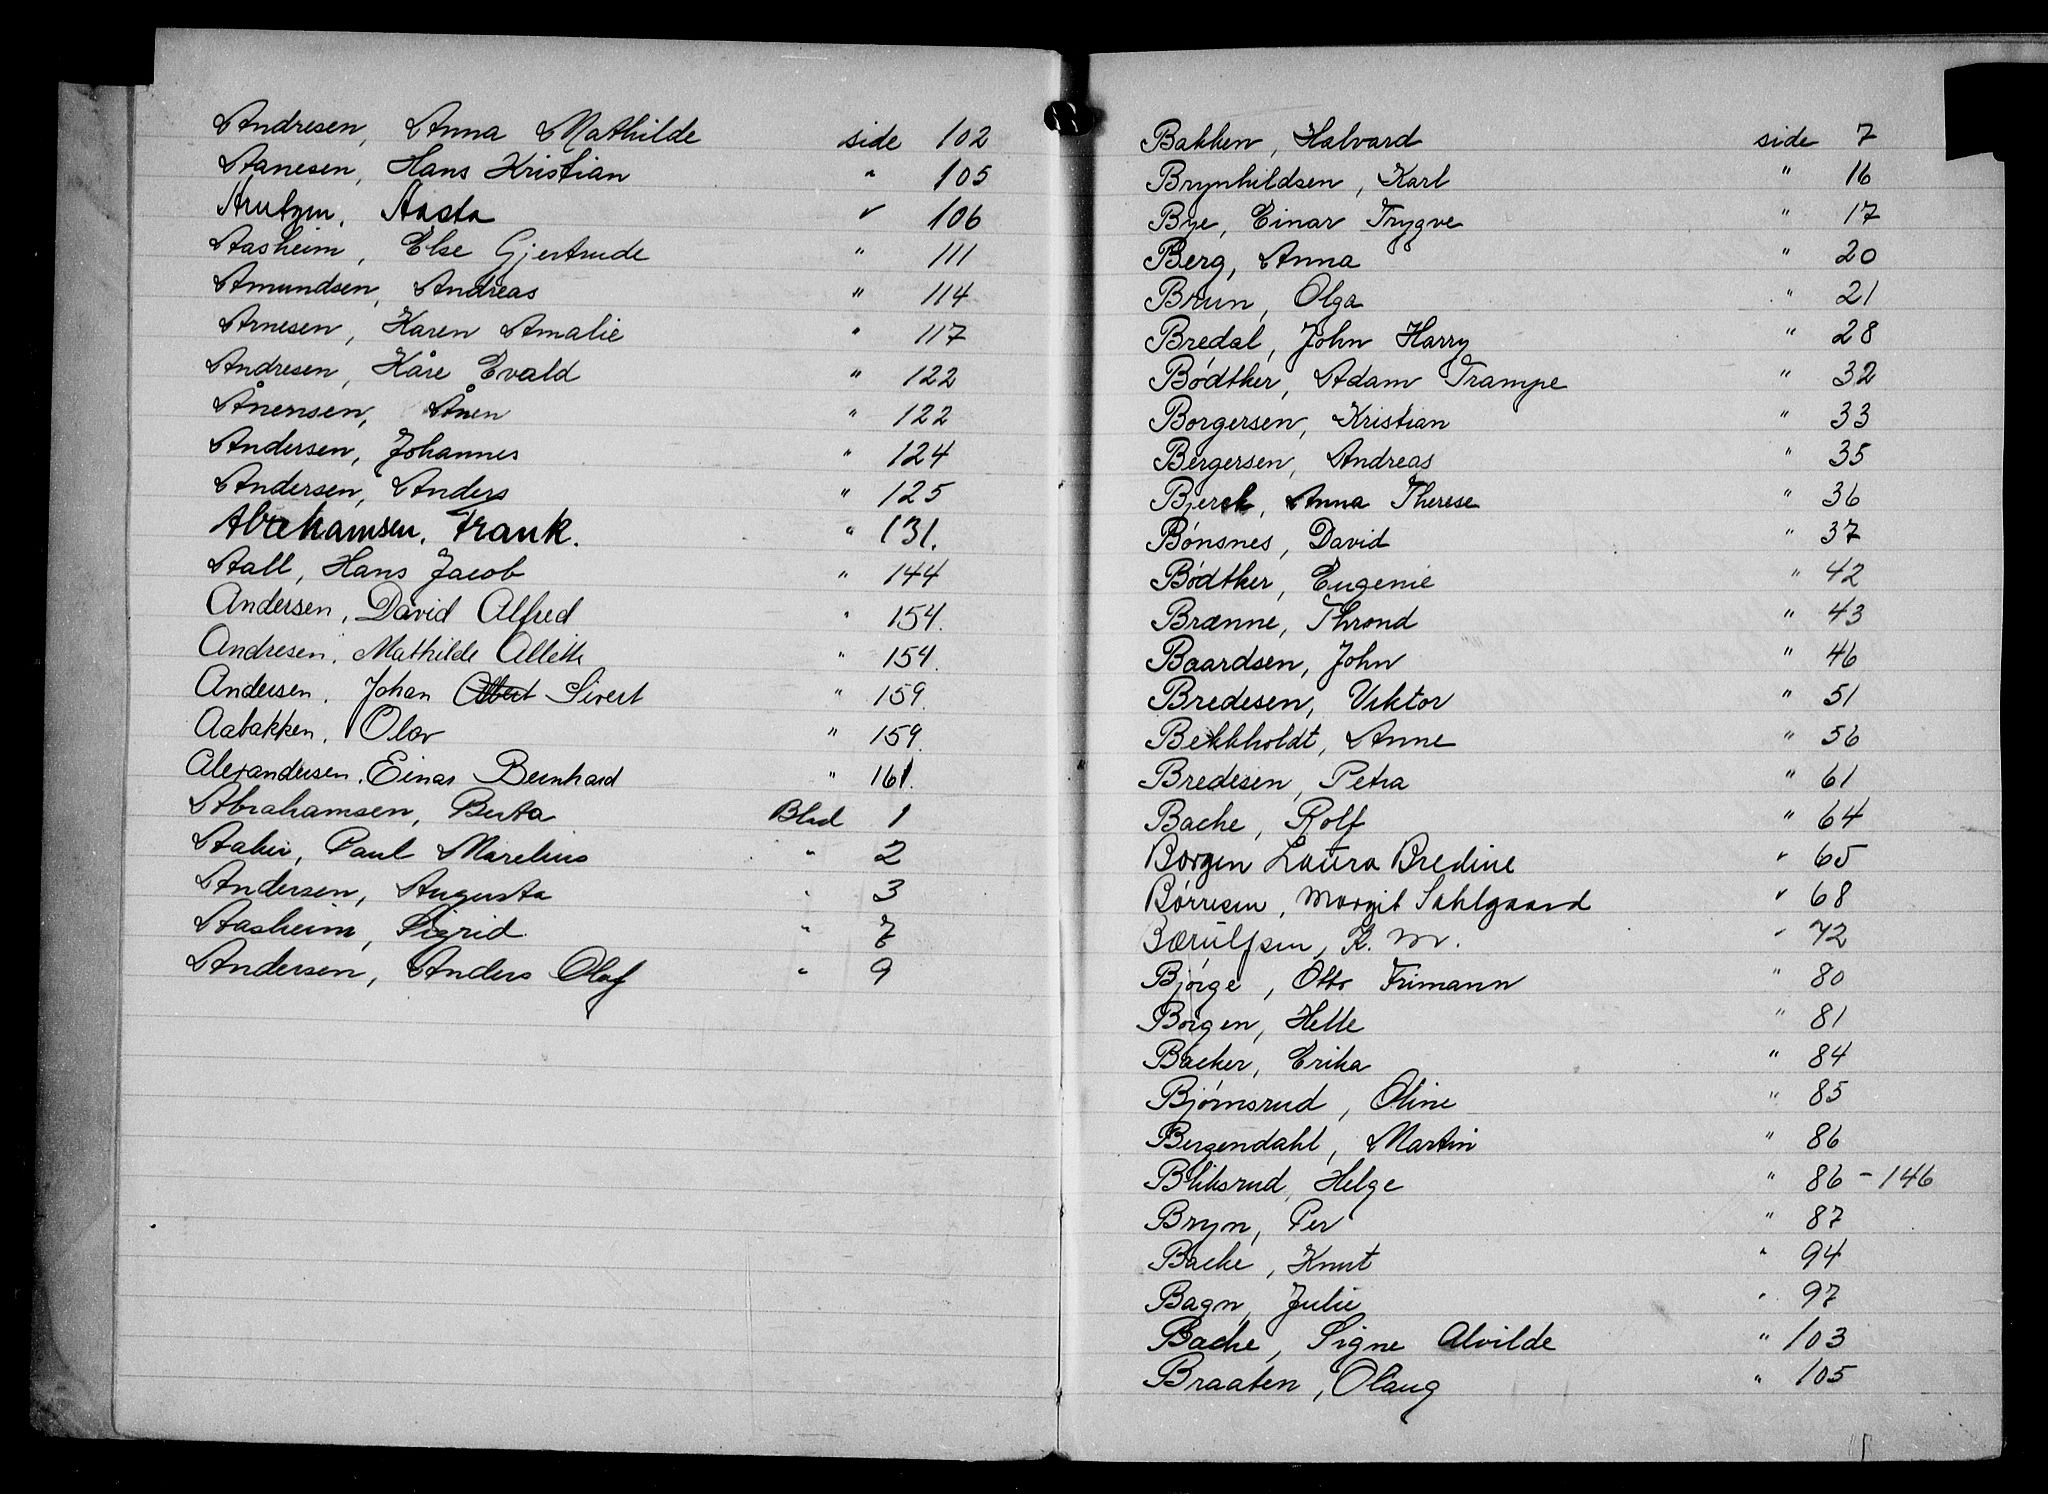 Andresen, Anna Mathilde side 102
Aanesen, Hans Kristian " 105
Arntzen, Aasta " 106
Aasheim, Else Gjertrude " 111
Amundsen, Andreas " 114
Arnesen, Karen Amalie " 117
Andresen, Kåre Evald " 122
Ånensen, Ånen " 122
Andersen, Johannes " 124
Andersen, Anders " 125
Abrahamsen, Frank. " 131.
Aall, Hans Jacob " 144
Andersen, David Alfred " 154.
Andresen, Mathilde Allette " 154.
Andersen, Johan Albert Sivert " 159.
Aabakken, Olav " 159.
Alexandersen, Einar Bernhard " 161.
Abrahamsen, Berta Blad 1
Paul Marelius " 2
Andersen, Augusta " 3
Aasheim, Sigrid " 7
Andersen, Anders Olaf " 9
Bakken, Halvard side 7
Brynhildsen, Karl " 16
Bye, Einar Trygve " 17
Berg, Anna " 20
Brun, Olga " 21
Bredal, John Harry " 28
Bødtker, Adam Trampe " 32
Borgersen, Kristian " 33
Bergersen, Andreas " 35
Bjerck, Anna Therese " 36
Bønsnes, David " 37
Bødtker, Eugenie " 42
Brænne, Thrond " 43
Baardsen, John " 46
Bredesen, Viktor " 51
Bekkholdt, Anne " 56
Bredesen, Petra " 61
Bache, Rolf " 64
Borgen Laura Bredine " 65
Børresen, Margit Sahlgaard " 68
Bærulfsen, K. M. " 72
Bjørge, Otto Frimann " 80
Borgen, Helle " 81
Backer, Erika " 84
Bjørnsrud, Oline " 85
Bergendahl, Martin " 86
Bliksrud, Helge " 86 - 146
Bryn, Per " 87
Bache, Knut " 94
Bagn, Julie " 97
Bache, Signe Alvilde " 103
Braaten, Olaug " 105